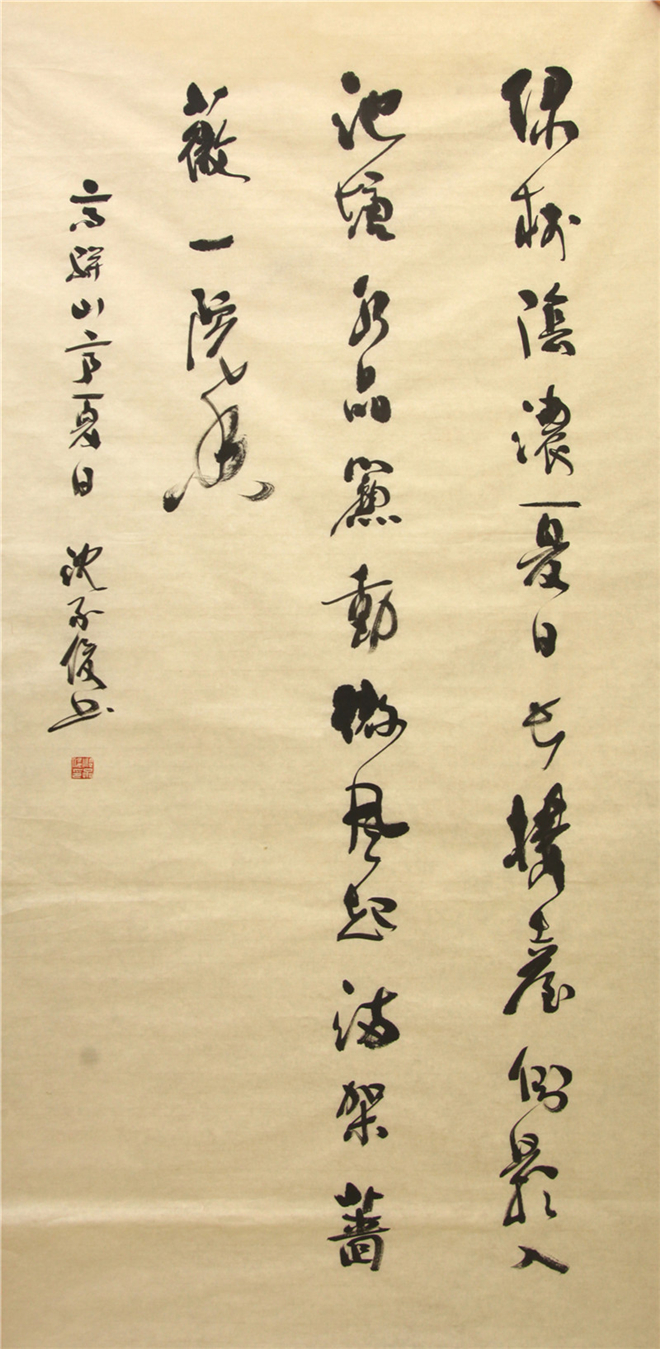 绿树阴浓夏日长楼台倒影入
池塘水晶帘动微风起满架蔷
薇一院香
高骈山亭夏日 沈不俊书